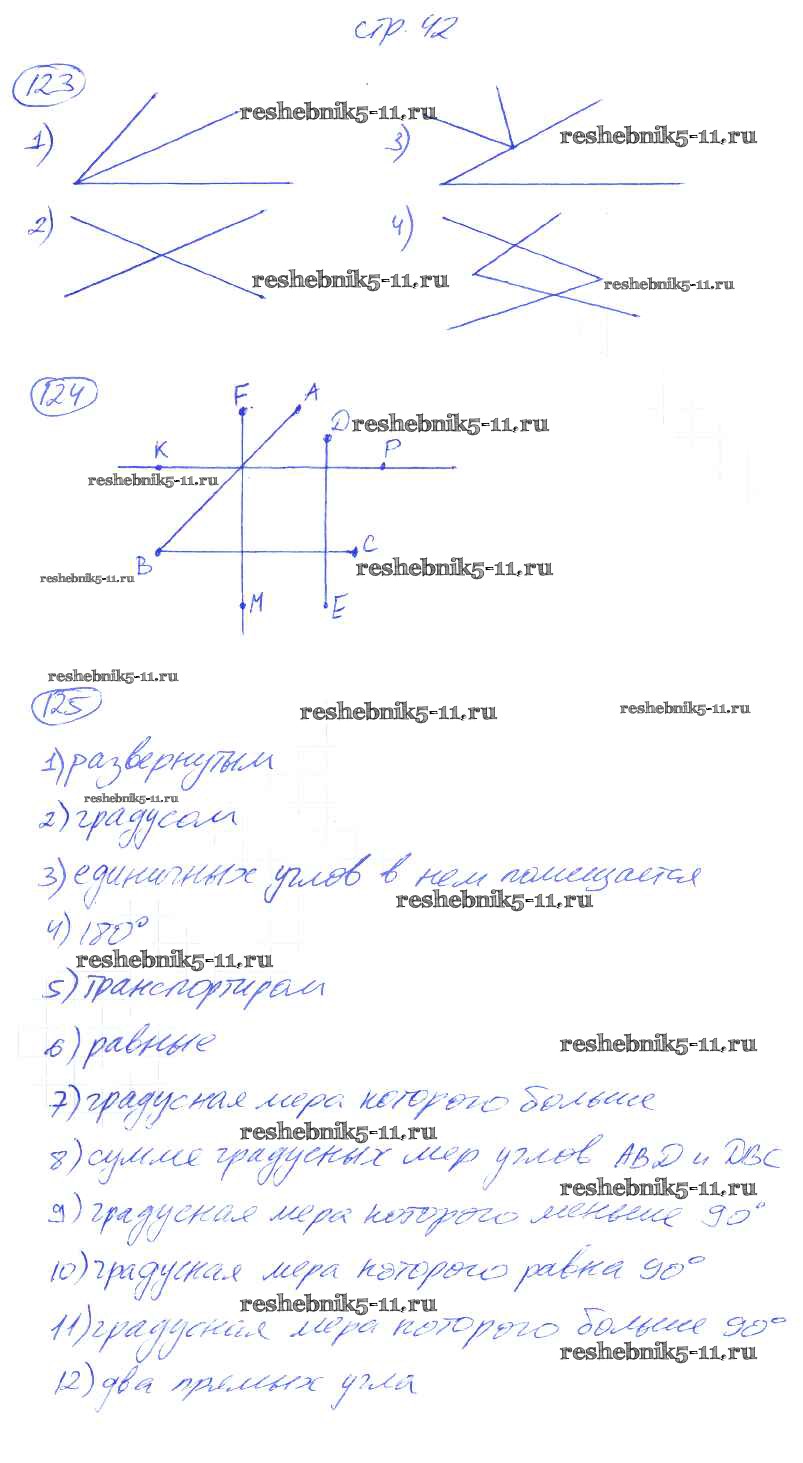 стр. 42
123
reshebnik5-11.ru
1)
3)
reshebnik5-11.ru
2)
4)
reshebnik5-11.ru
reshebnik5-11.ru
124
F A
D reshebnik5-11.ru
K P
reshebnik5-11.ru
B C
reshebnik5-11.ru
reshebnik5-11.ru
M E
reshebnik5-11.ru
125
reshebnik5-11.ru
reshebnik5-11.ru
1) развернутым
reshebnik5-11.ru
2) градусом
3) единичных углов в нем помещается
reshebnik5-11.ru
4) 180°
reshebnik5-11.ru
5) транспортиром
6) равные
reshebnik5-11.ru
7) градусная мера которого больше
reshebnik5-11.ru
8) сумме градусных мер углов ABD и DBC
reshebnik5-11.ru
9) градусная мера которого меньше 90°
10) градусная мера которого равна 90°
reshebnik5-11.ru
11) градусная мера которого больше 90°
reshebnik5-11.ru
12) два прямых угла